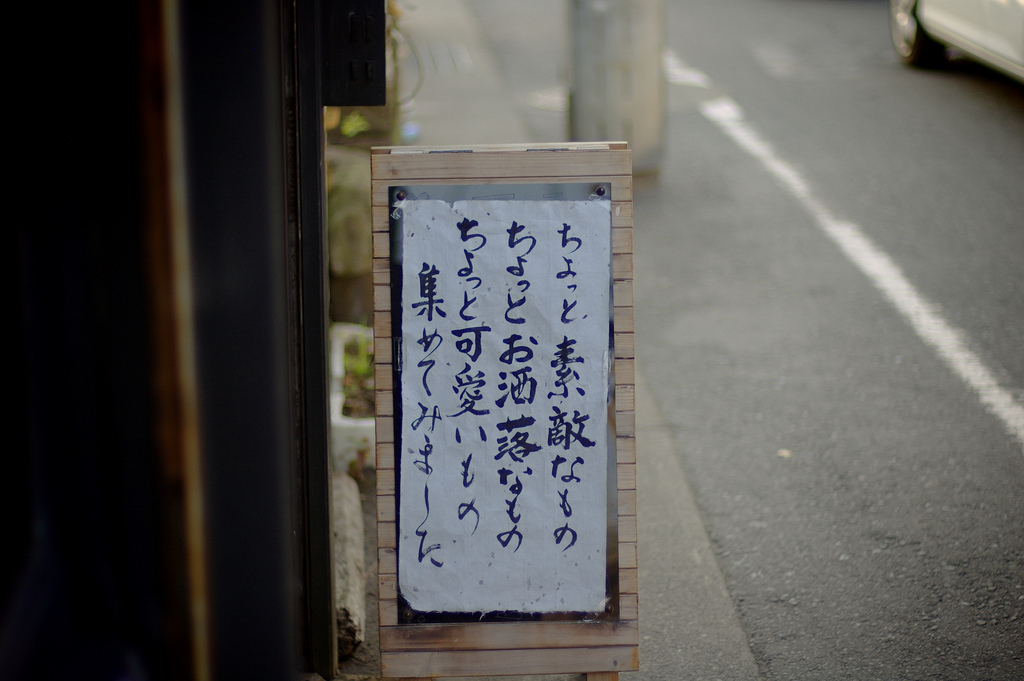 ちょっと素敵なもの
ちょっとお洒落なもの
ちょっと可愛いもの
集めてみました